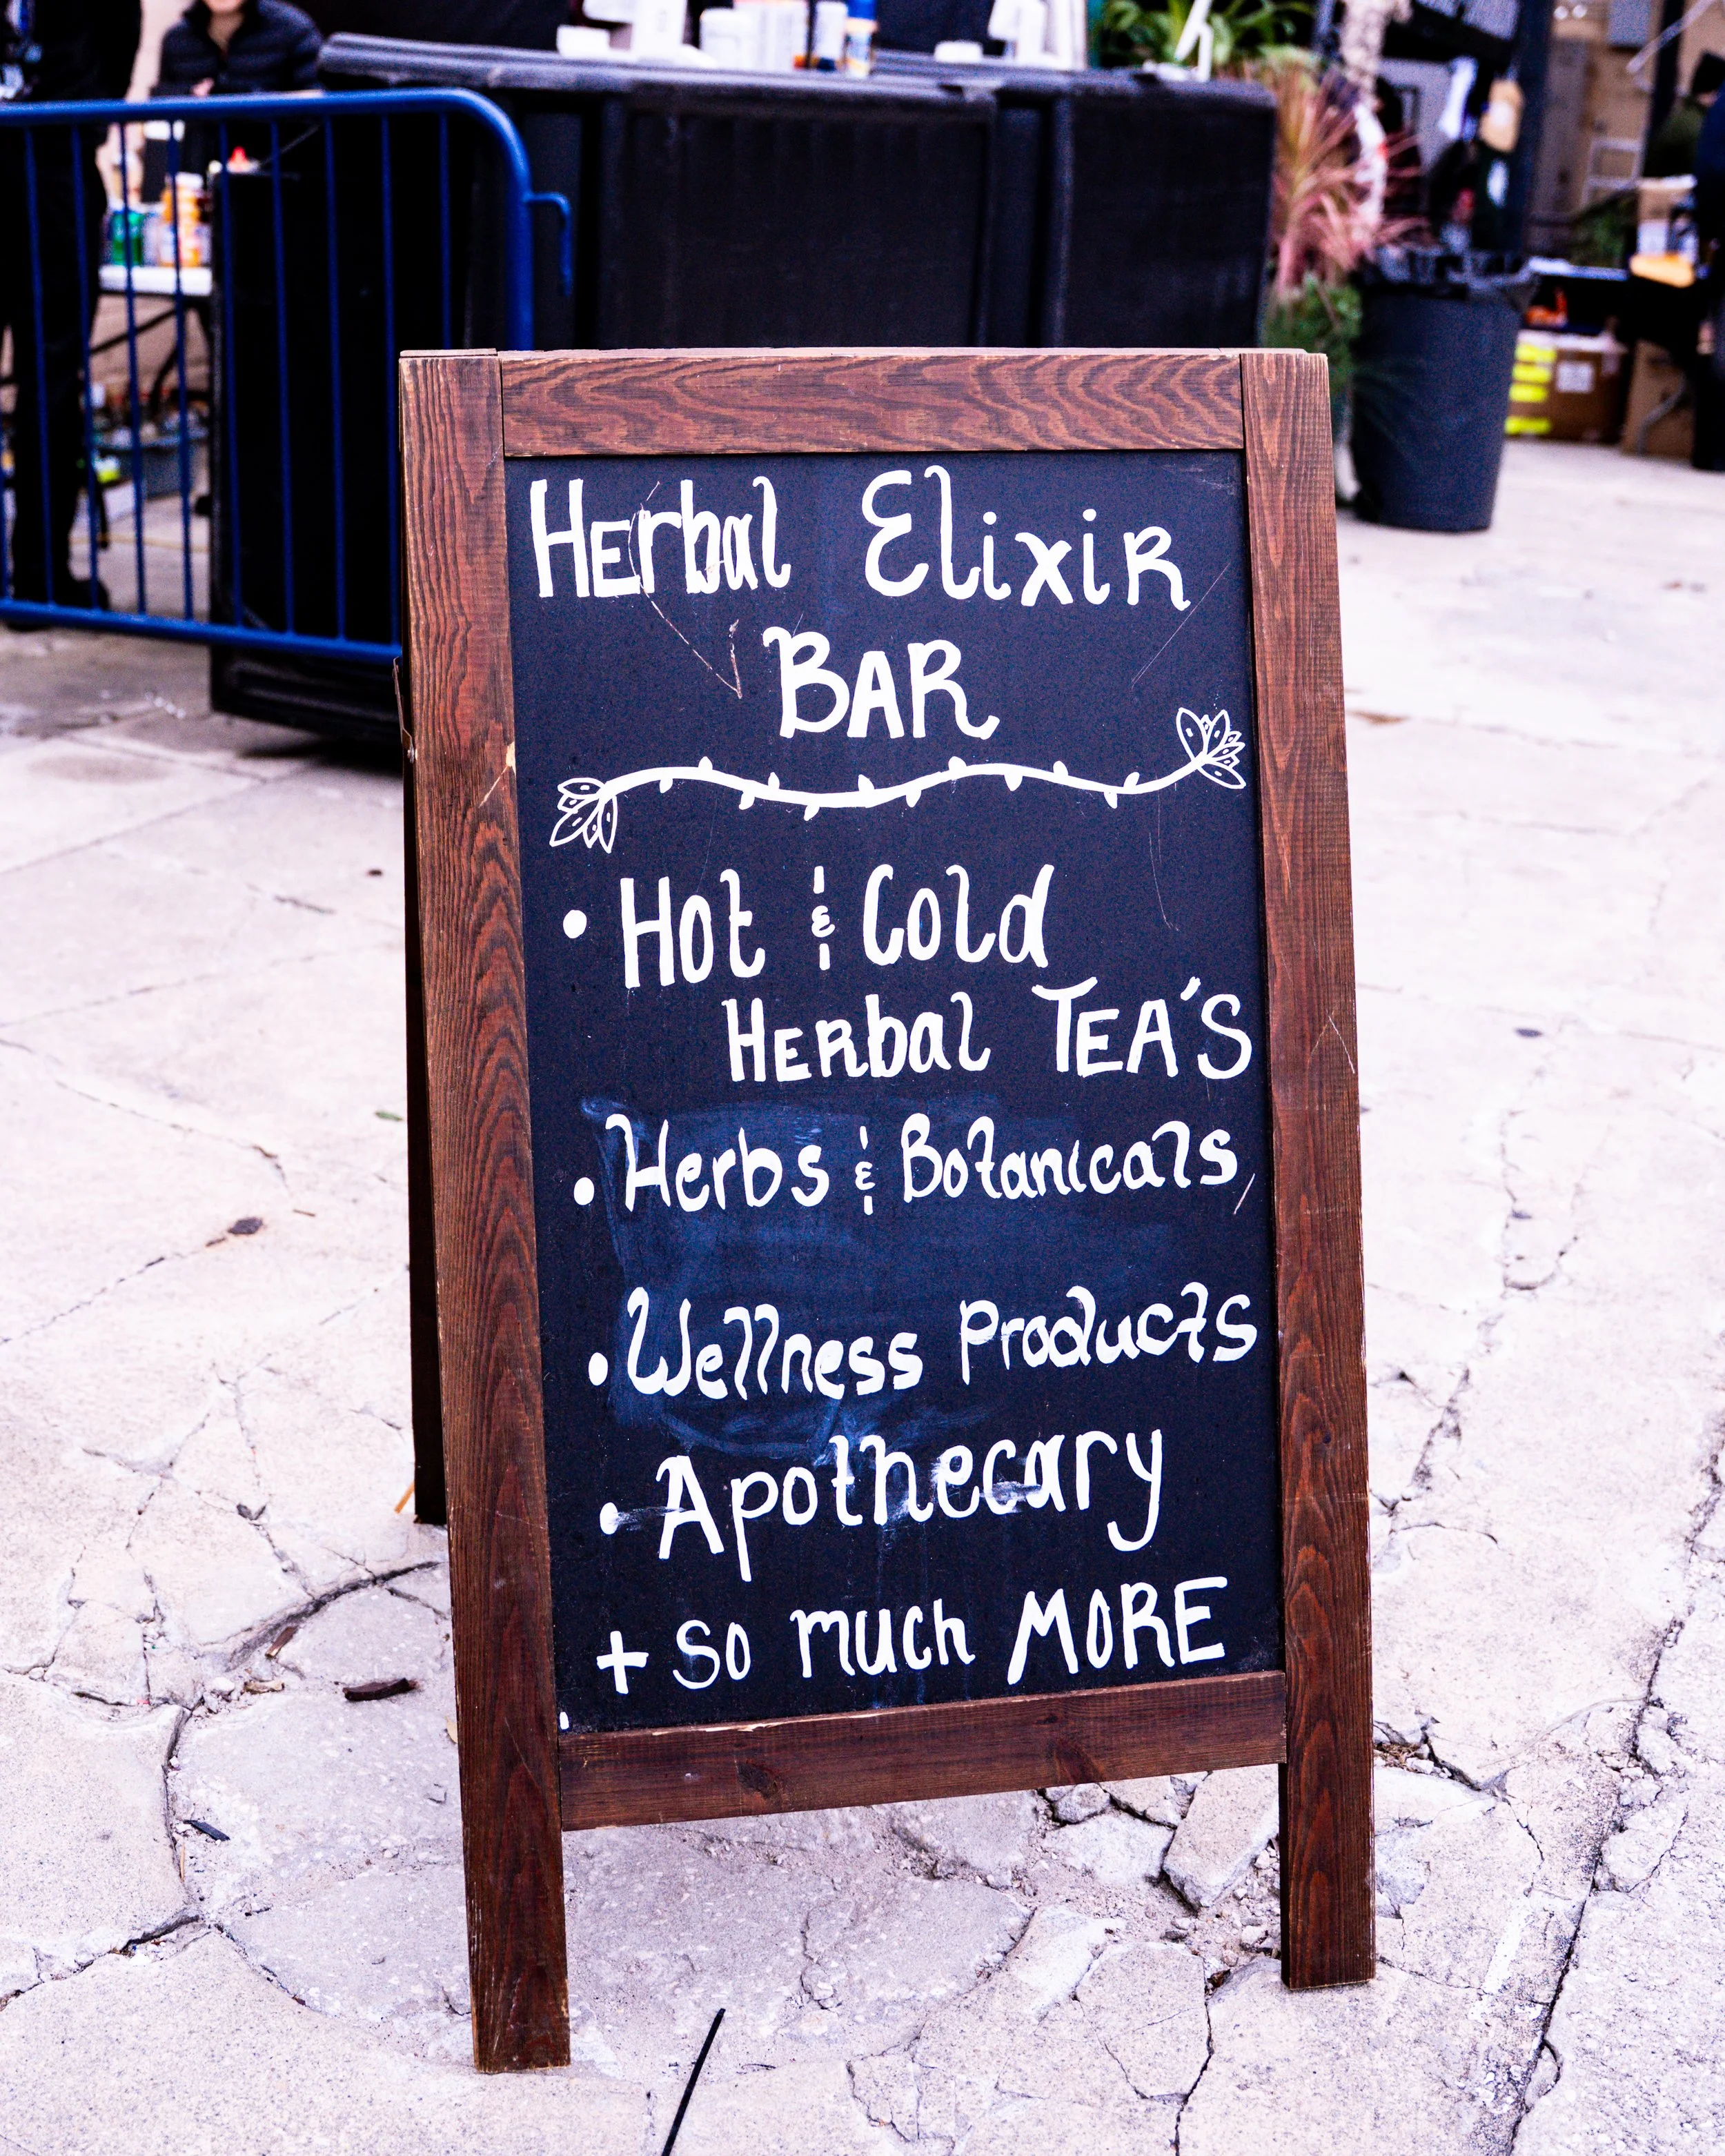 Herbal Elixir
BAR
• Hot & Cold
Herbal TEA'S
• Herbs & Botanicals
• Wellness Products
• Apothecary
+ so much MORE